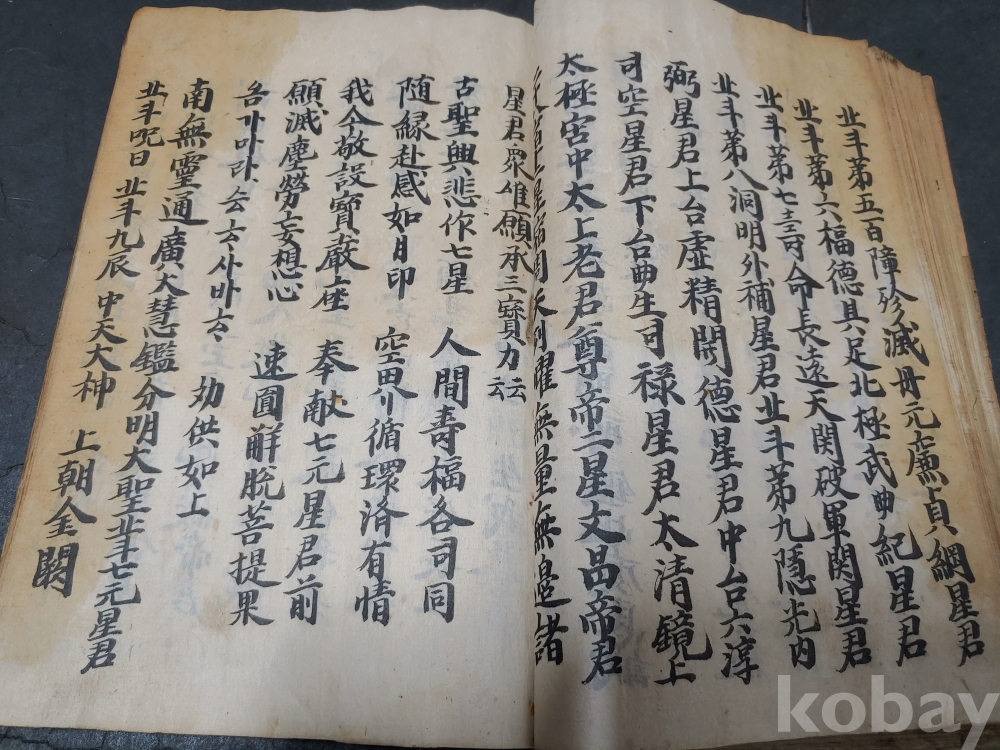 北斗第五百障殄滅丹元廉貞綱星君
北斗第六福德具足北極武曲紀星君
北斗第七三台命長遠天関破軍関星君
北斗第八洞明外補星君北斗第九隱光內
弼星君上台虛精開德星君中台六淳
司空星君下台曲生司祿星君太清鏡上
太極宮中太上老君尊帝二星文昌帝君
曜無量無邊諸
星君衆惟願承三寶力云云
古聖興悲作七星 人間壽福各司同
随緣赴感如月印 空界循環済有情
我今敬設寶嚴座 奉献七元星君前
願滅塵勞妄想心 速圓解脫菩提果
옴가마라 사바 勸供如上
南無靈通廣大慧鑑分明大聖北斗七元星君
北斗呪曰 北斗九辰 中天大神 上朝金闕
kobay